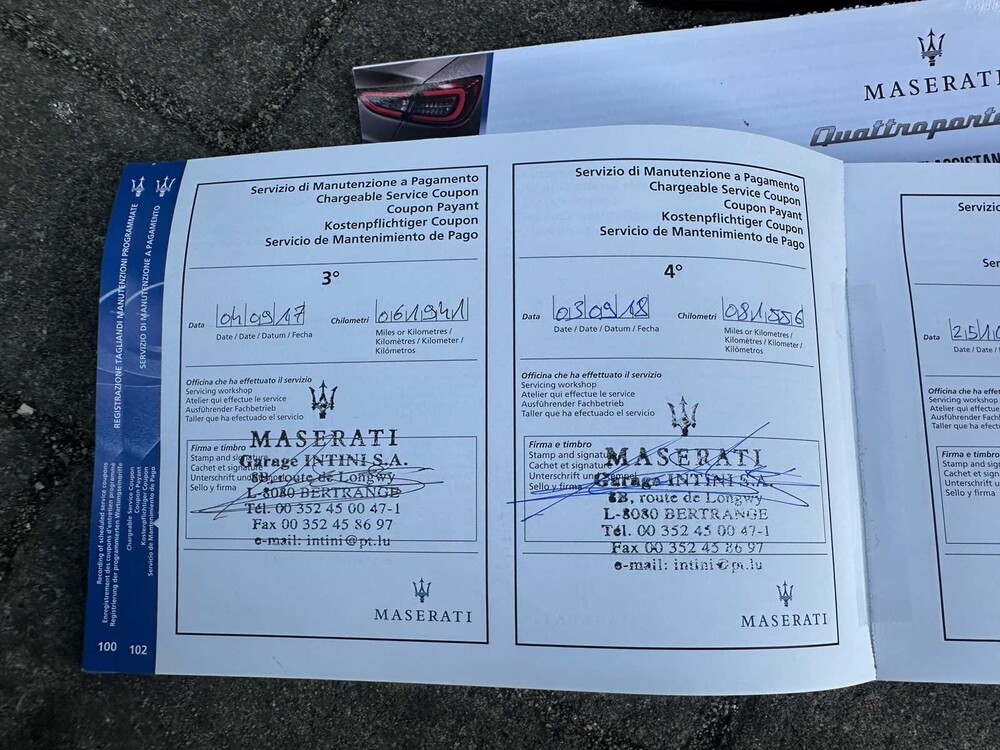 MASERATI
Quattroporte
REGISTRAZIONE TAGLIANDI MANUTENZIONI PROGRAMMATE
SERVIZIO DI MANUTENZIONE A PAGAMENTO
Recording of scheduled service coupons
Enregistrement des coupons d'entretien programmé
Registrierung der programmierten Wartungseingriffe
Chargeable Service Coupon
Coupon Payant
Kostenpflichtiger Coupon
Servicio de Mantenimiento de Pago
100 102
Servizio di Manutenzione a Pagamento
Chargeable Service Coupon
Coupon Payant
Kostenpflichtiger Coupon
Servicio de Mantenimiento de Pago
3°
Data 04/09/17 Chilometri 061941
Date / Date / Datum / Fecha
Miles or Kilometres /
Kilomètres / Kilometer /
Kilómetros
Officina che ha effettuato il servizio
Servicing workshop
Atelier qui effectue le service
Ausführender Fachbetrieb
Taller que ha efectuado el servicio
Firma e timbro
Stamp and signature
Cachet et signature
Unterschrift und
Sello y firma
MASERATI
Garage INTINI S.A.
8B, route de Longwy
L-8080 BERTRANGE
Tél. 00 352 45 00 47-1
Fax 00 352 45 86 97
e-mail: intini@pt.lu
MASERATI
Servizio di Manutenzione a Pagamento
Chargeable Service Coupon
Coupon Payant
Kostenpflichtiger Coupon
Servicio de Mantenimiento de Pago
4°
Data 03/09/18 Chilometri 081556
Date / Date / Datum / Fecha
Miles or Kilometres /
Kilomètres / Kilometer /
Kilómetros
Officina che ha effettuato il servizio
Servicing workshop
Atelier qui effectue le service
Ausführender Fachbetrieb
Taller que ha efectuado el servicio
Firma e timbro
Stamp and signature
Cachet et signature
Unterschrift und Stempel
Sello y firma
MASERATI
Garage INTINI S.A.
8B, route de Longwy
L-8080 BERTRANGE
Tél. 00 352 45 00 47-1
Fax 00 352 45 86 97
e-mail: intini@pt.lu
MASERATI
Servizi
Ser
Data 25/10
Date / Date /
Officina che ha effettu
Servicing workshop
Atelier qui effectue le
Ausführender Fachbe
Taller que ha efectuad
Firma e timbro
Stamp and sign
Cachet et signat
Unterschrift un
Sello y firma